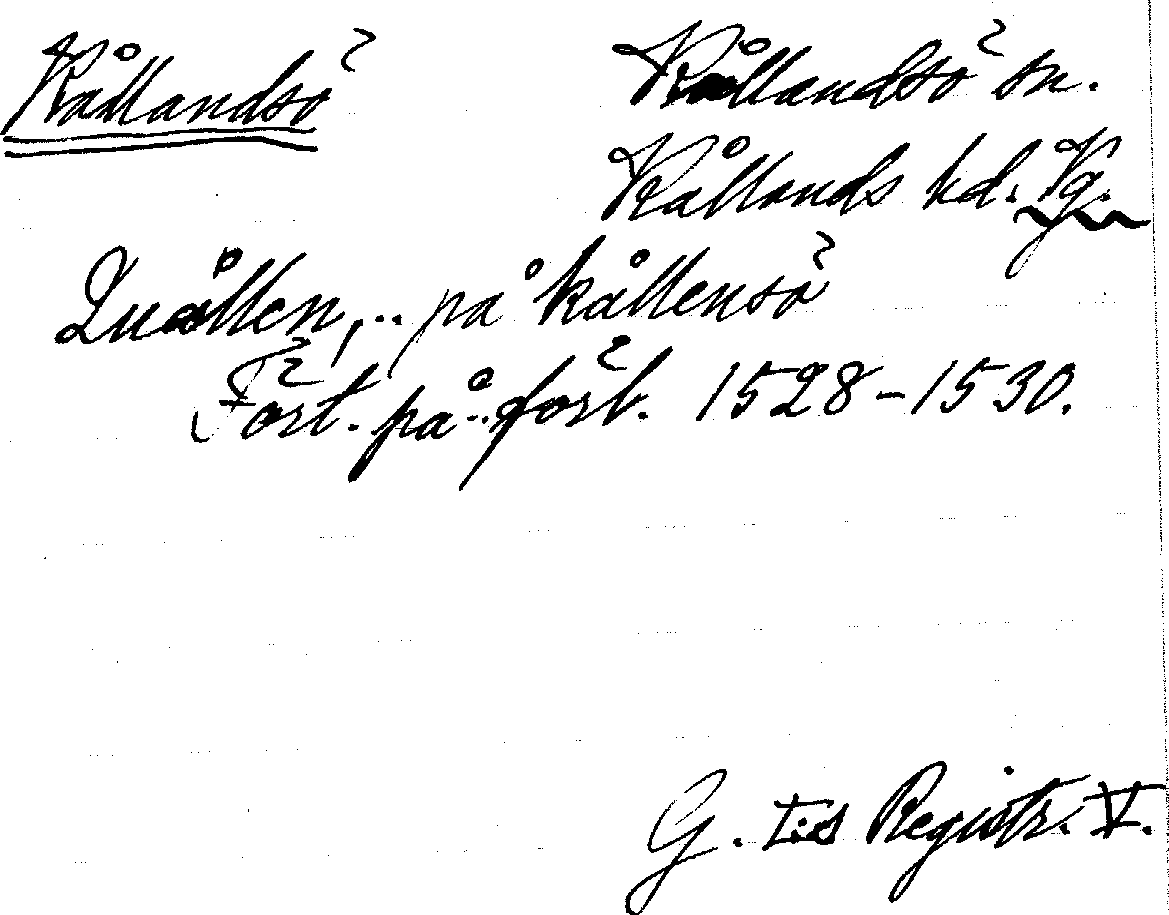 Kållandsö
Kållandsö sn.
Kållands hd. Vg.
Quållen,.. på kållensö
Fört. på.. förl. 1528-1530.
G. I:s Registr. V.